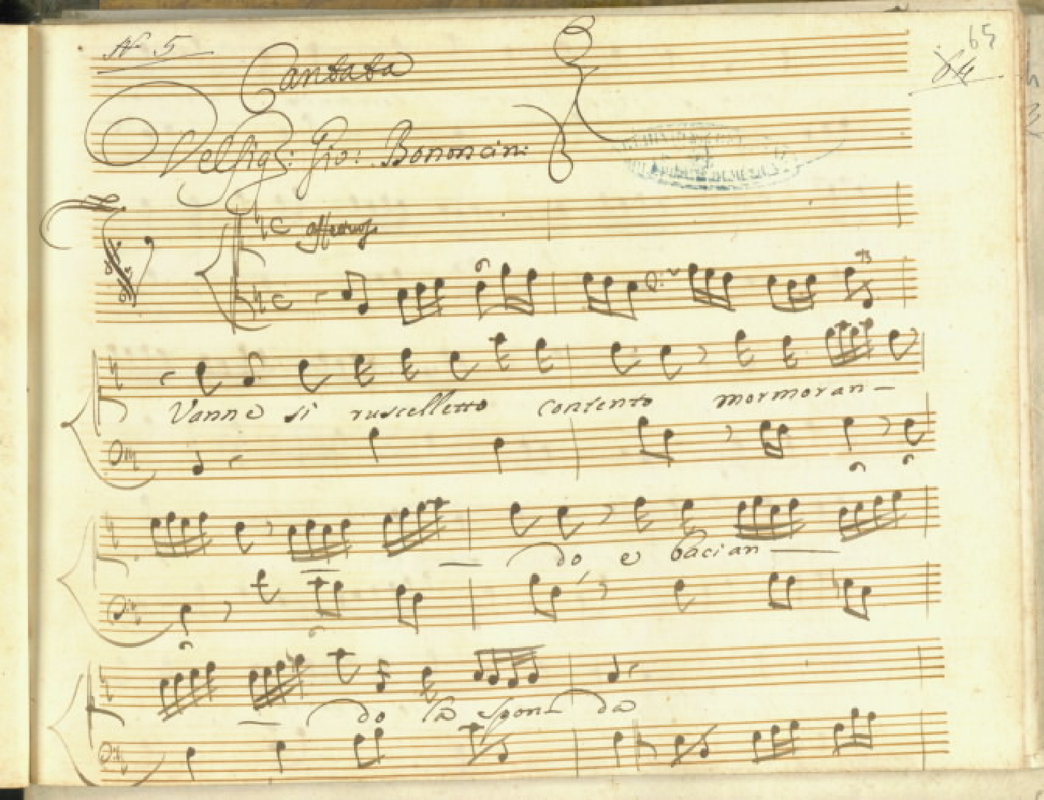 N. 5
65
64
Cantata
Del Sig.: Gio: Bononcini
Vanne sì ruscelletto contento mormoran-
do e bacian
do la spon- da